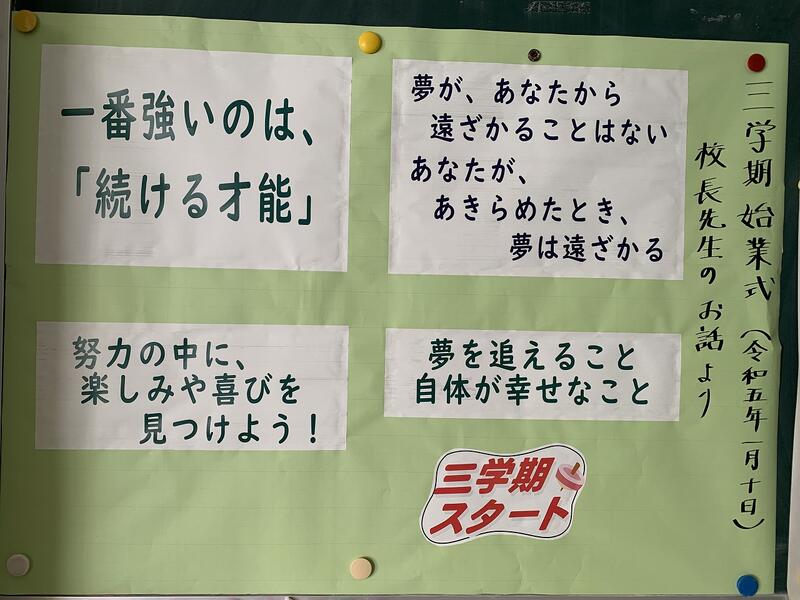 三学期 始業式 (令和五年一月十日)
校長先生のお話より
夢が、あなたから
遠ざかることはない
あなたが、
あきらめたとき、
夢は遠ざかる
一番強いのは、
「続ける才能」
夢を追えること
自体が幸せなこと
努力の中に、
楽しみや喜びを
見つけよう！
三学期
スタート